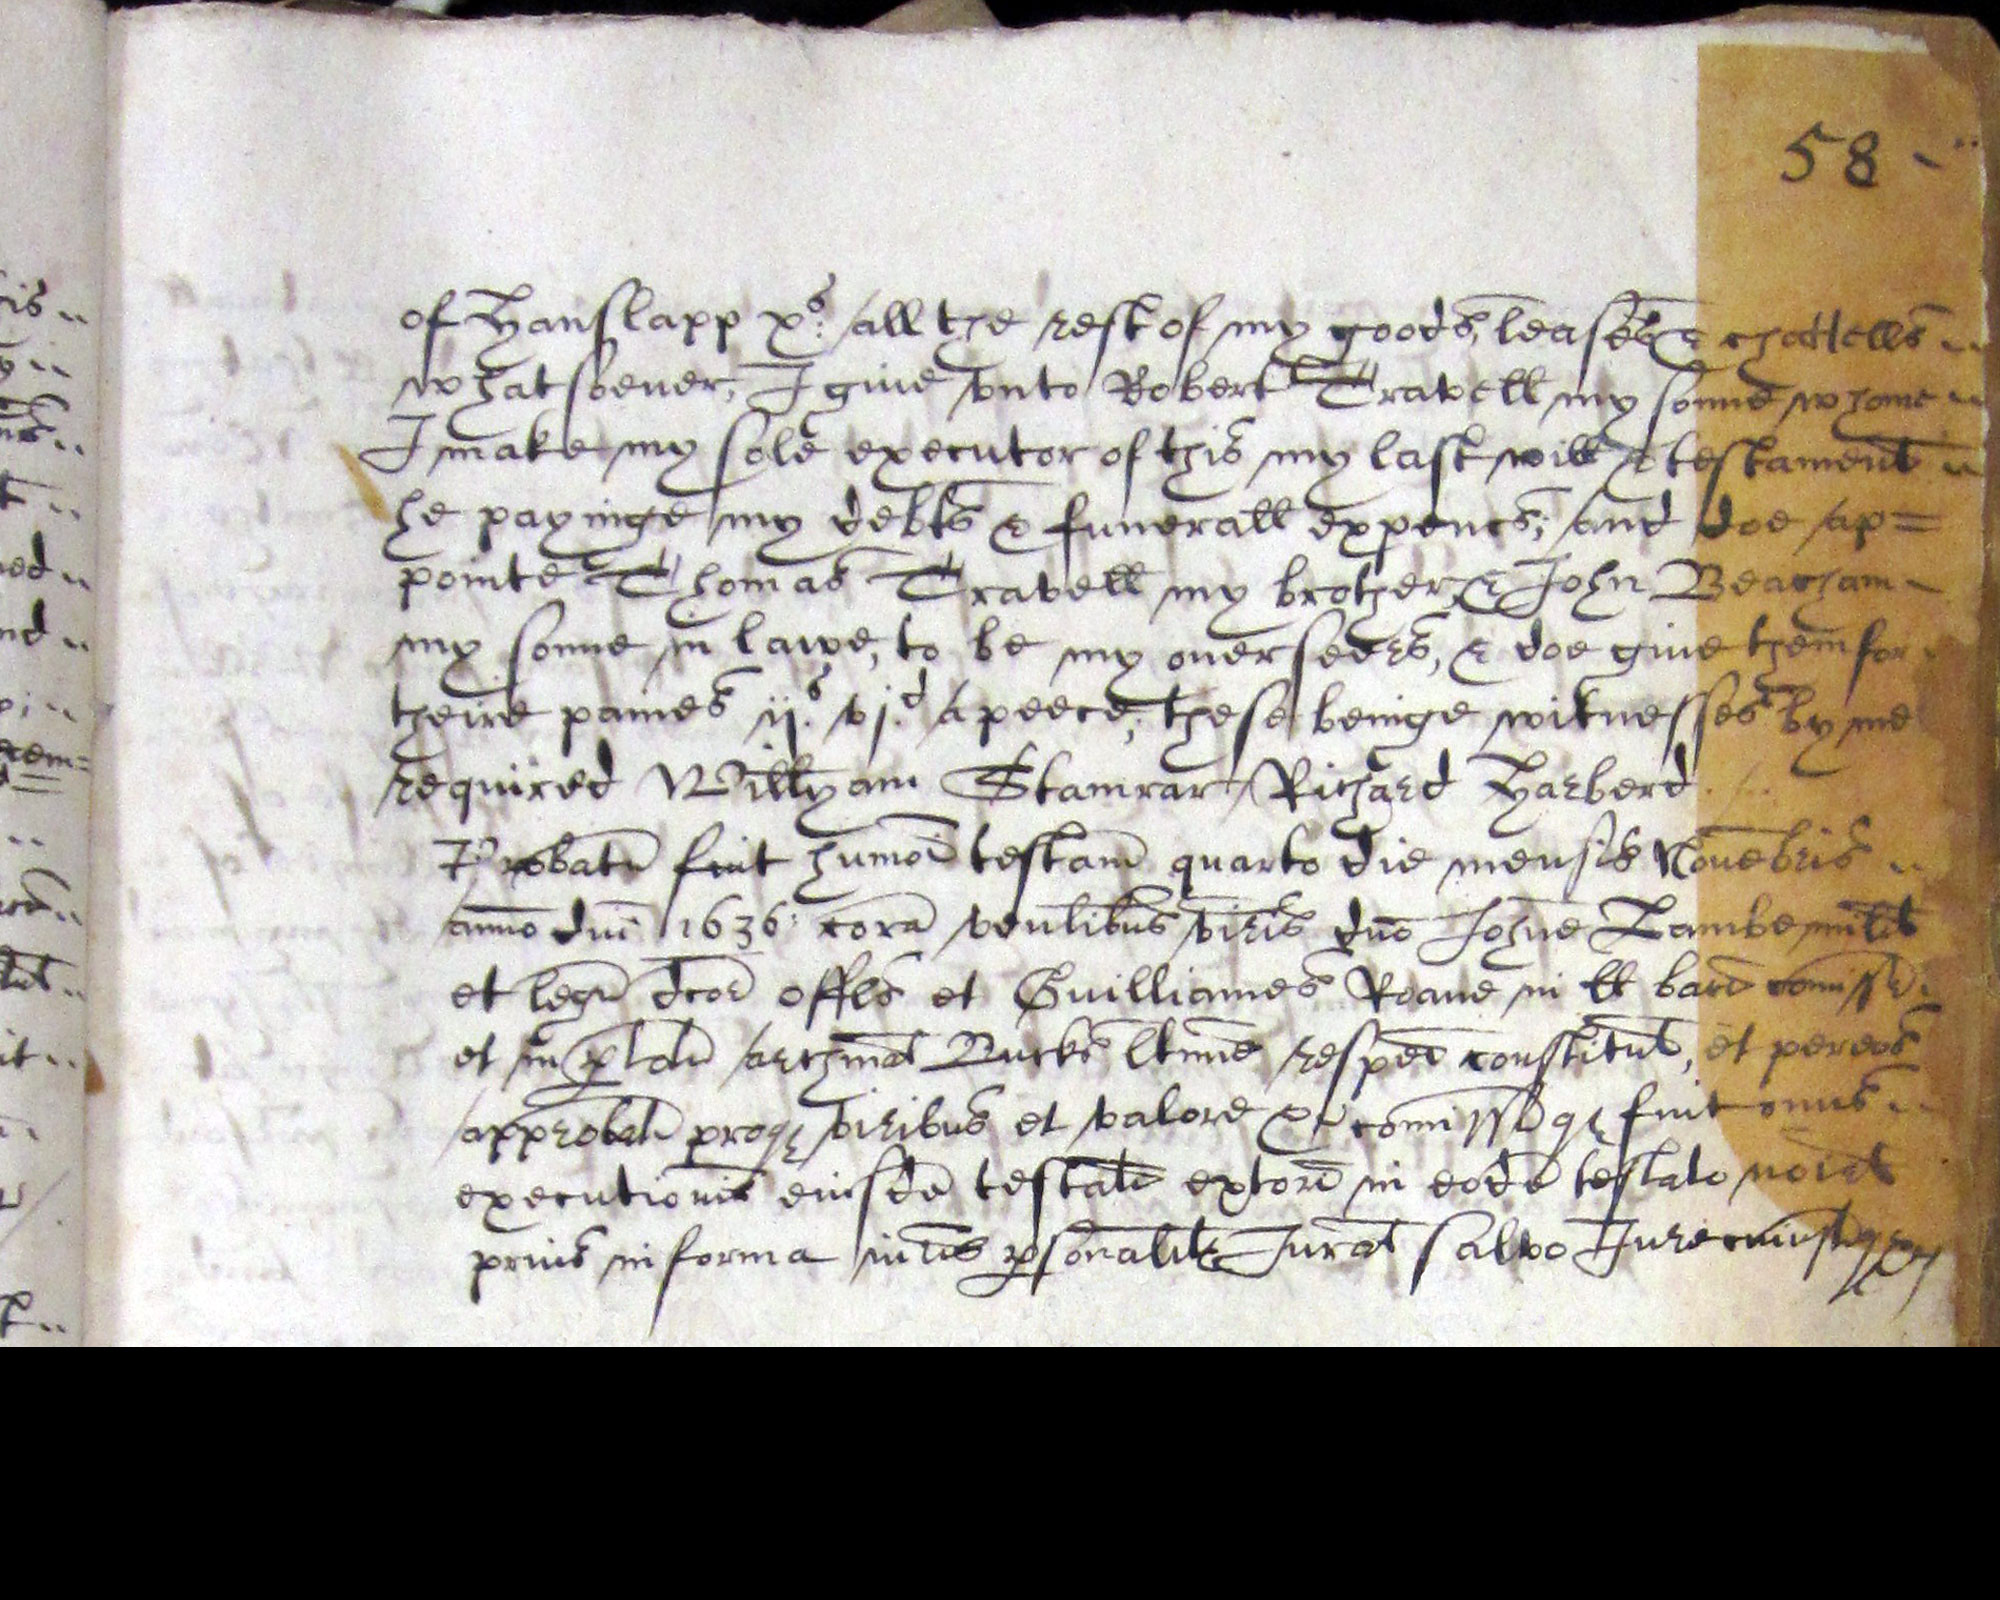 58
of Hanslapp xs: all the rest of my goods, leases & chattells
whatsoever, I give vnto Robert Travell my sonne whome
I make my sole executor of this my last will & testament
he payinge my debts & funerall expences; and doe ap=
pointe Thomas Travell my brother, & John Beacham
my sonne in lawe, to be my overseers, & doe give them for
theire paines ijs. vjd. apeece; these beinge witnesses by me
required Willyam Stamrar Richard Harberd
Probatu fuit humoi testam quarto die mensis Novebris
anno dni 1636: cora venlibus viris dno Johne Lambe milit
et legu dcor offls et Guilliames Roane in ll bacc comissr
et in archinat Bucks ltime respec constitut, et per eos
approbatu proqe viribus et valore &c comissd qe fuit onus
executionis eiusde testati extori in eode testato noiat
prius in forma iuris psonalitr Jurat salvo Jure cuiuscuqe